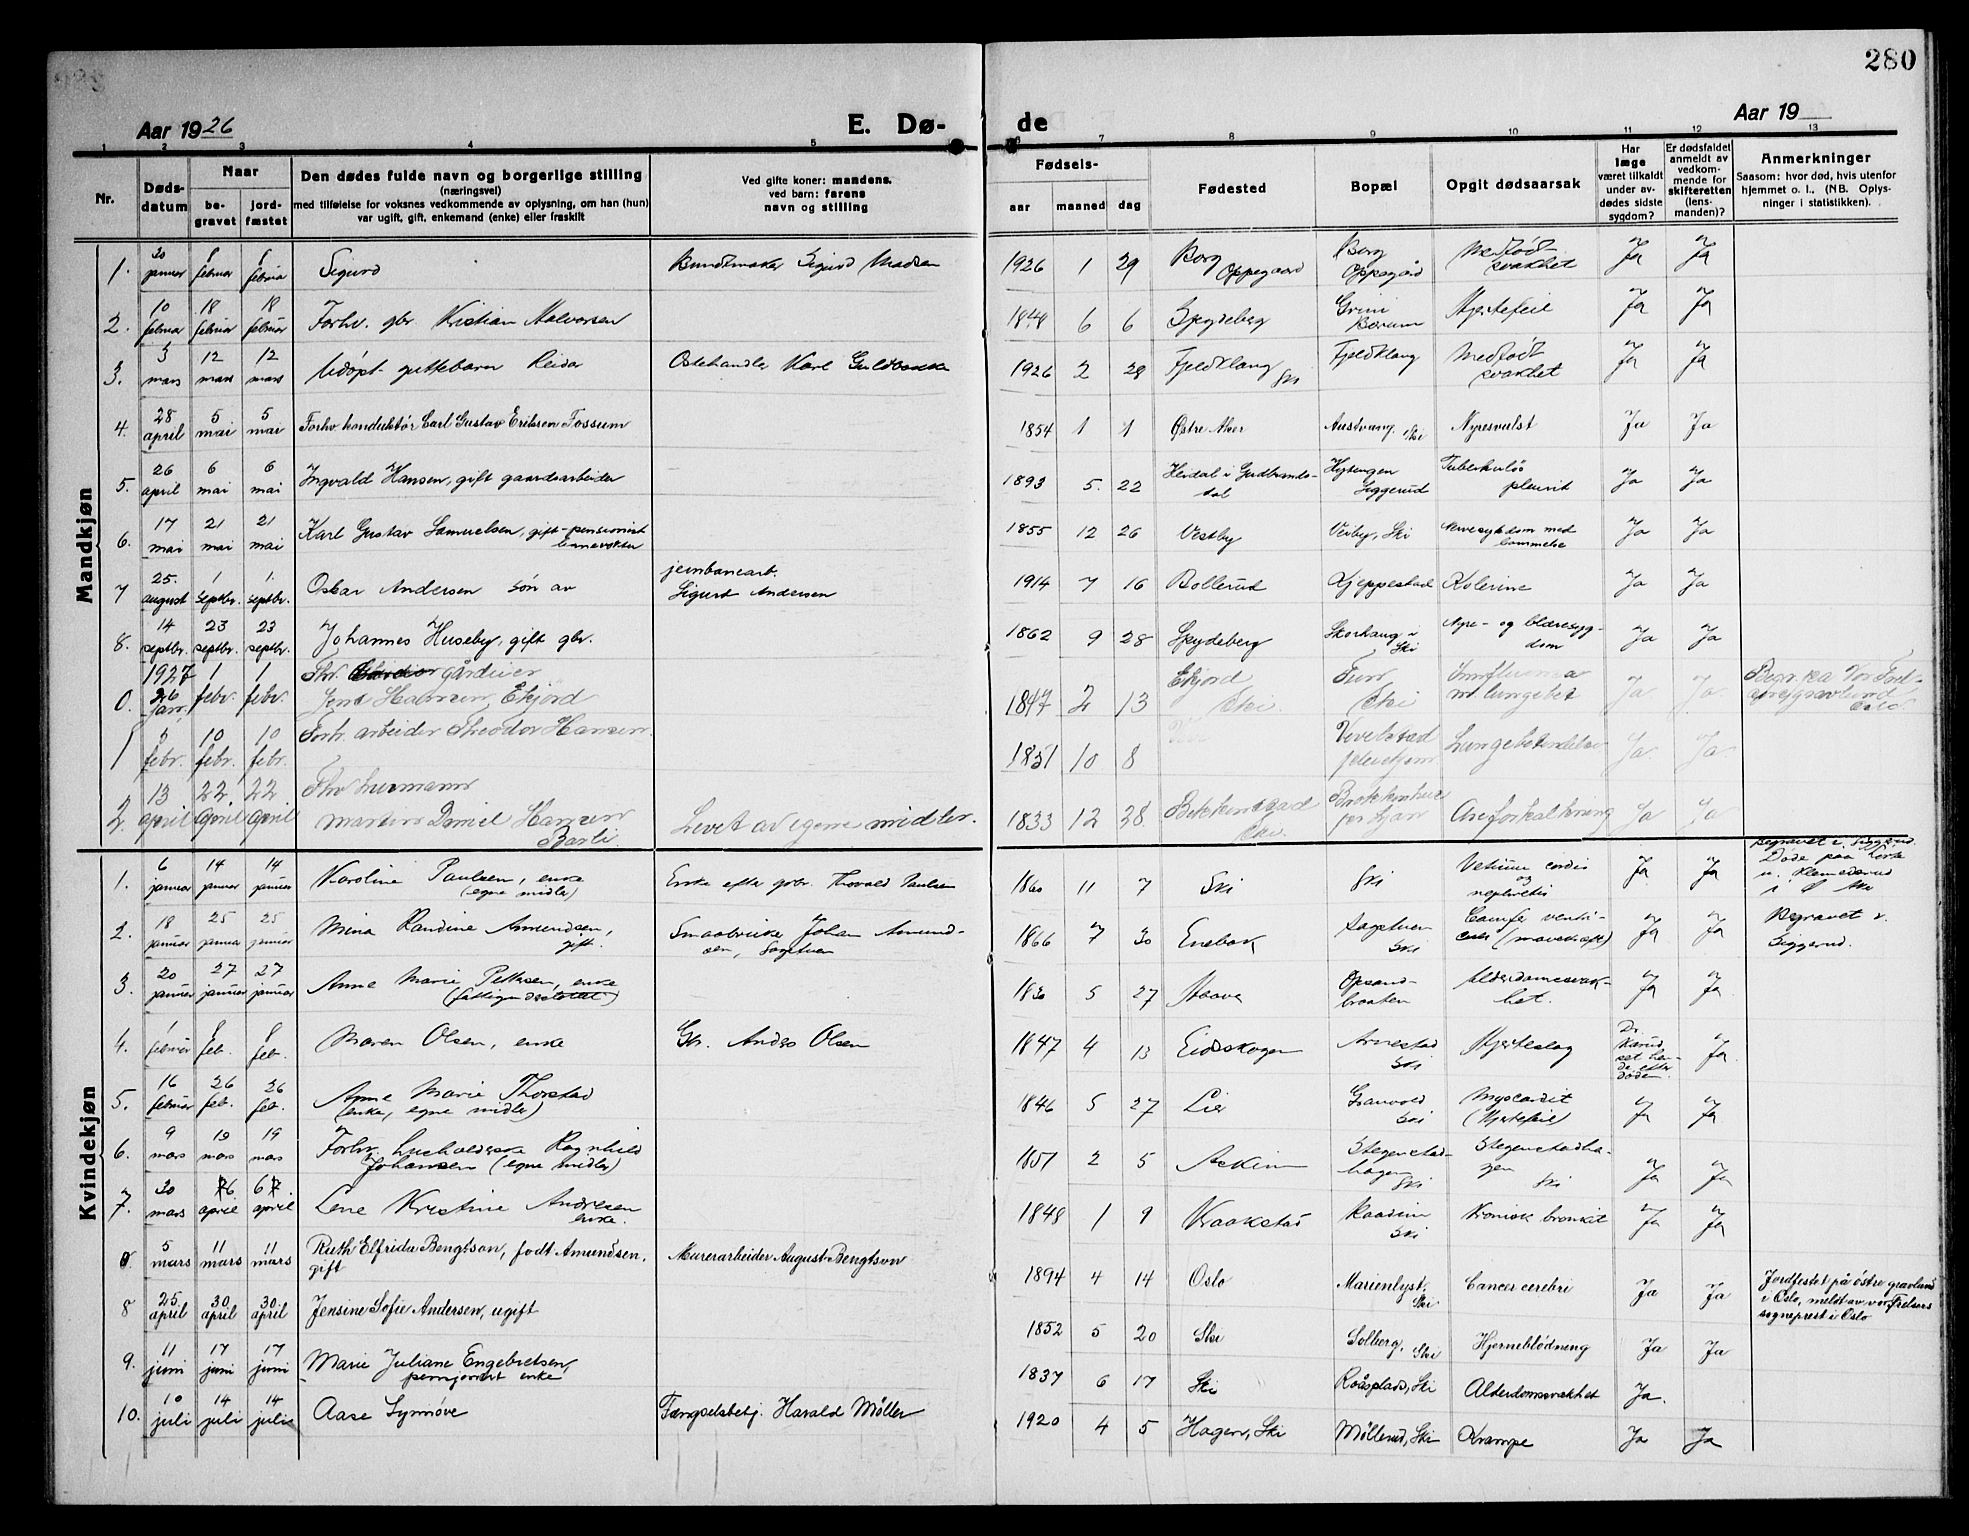 280
Aar 1926
E. Dø-
de
Aar 19
1 2 3 4 5 6 7 8 9 10 11 12 13
Nr.
Døds-
datum
Naar
be-
gravet
jord-
fæstet
Den dødes fulde navn og borgerlige stilling
(næringsvei)
med tilføielse for voksnes vedkommende av oplysning, om han (hun)
var ugift, gift, enkemand (enke) eller fraskilt
Ved gifte koner: mandens.
ved barn: farens
navn og stilling
Fødsels-
aar maaned dag
Fødested
Bopæl
Opgit dødsaarsak
Har
læge
været tilkaldt
under av-
dødes sidste
sygdom?
Er dødsfaldet
anmeldt av
vedkom-
mende for
skifteretten
(lens-
manden)?
Anmerkninger
Saasom: hvor død, hvis utenfor
hjemmet o. l., (NB. Oplys-
ninger i statistikken).
Mandkjøn
1. 30 januar februar Sigurd Buntmaker Sigurd Madsen 1926 1 29 Borg Oppegaard Borg Oppegård Medfødt svakhet Ja Ja
2. 10 februar 18 februar 18 februar Forhv. gbr Kristian Halvorsen 1848 6 6 Spydeberg Grini Bærum Hjertefeil Ja Ja
3. 3 mars 12 mars 12 mars Udøpt guttebarn Reidar Ostehandler Karl 1926 2 28 Fjeldklang Ski Fjeldklang Medfødt svakhet Ja Ja
4. 28 april 5 mai 5 mai Forhv konduktør Carl Gustav Eriksen Fossum 1854 1 1 Østre Aker Austvang, Ski Nyresvulst Ja Ja
5. 26 april 6 mai 6 mai Ingvald Hansen, gift gaardsarbeider 1893 5. 22 Heidal i Gudbrands-dal Siggerud Tuberkuløs pleurit Ja Ja
6. 17 mai 21 mai 21 mai Karl Gustav Samuelsen, gift - pensionist banevokter 1855 12 26 Vestby Veiby, Ski Nervesykdom med lammelse Ja Ja
7 25. august 1 septbr. 1. septbr. Oskar Andersen søn av jernbanearb. Sigurd Andersen 1914 7 16 Bollerud Kjeppestad Kolerine Ja Ja
8. 14 septbr. 23 septbr. 23 septbr. Johannes Huseby, gift gbr. 1862 9 28 Spydeberg Skorhaug i Ski Nyre- og blæresyg-dom Ja Ja
0. 1927 26 jan. 1 febr. 1 febr. Fhv. gårdeier Jens Halvorsen, Ekjord 1847 2 13 Ekjord Ski Ski Influensa m. lungebet Ja Ja
1 febr. 10 febr. 10 febr. Forh. arbeider Theodor Hansen 1851 10 8 Vevelstad pleiehjem Lungebetændelse Ja Ja
2. 13 april 22 april 22 april Fhv Martin Daniel Hansen Barli. Levet av egne midler. 1833 12 28 Ski. Areforkalkning Ja Ja
Kvindekjøn
1. 6 januar 14 januar 14 januar Karoline Paulsen, enke (egne midler) Enke efter gbr. Thorvald Paulsen 1860 11 7 Ski Ski Vitium cordis og nephritis Ja Ja Begravet v. Siggerud. Døde paa
2. 18 januar 25 januar 25 januar Mina Randine Amundsen, gift. Smaabruker Johan Amund-sen, Sagstuen 1866 7 30 Enebak Sagstuen Ski Cancer ventri-culi (mavekræft) Ja Ja Begravet v. Siggerud.
3. 20 januar 27 januar 27 januar Anne Marie Pettersen, enke (fattigunderstøttet) 1830 5 27 Opsand-braaten Alderdomssvak-het. Ja Ja
4. 1 februar 8 feb. 8 feb. Maren Olsen, enke Gb. Anders Olsen 1847 4 13 Eidskogen Arnestad Ski Hjerteslag Dr. Ja
5. 16 februar 26 feb. 26 feb. Anne Marie Thorstad (enke, egne midler) 1846 5 27 Lier Granvold Ski Myocardit (Hjertefeil Ja Ja
6. 9 mars 19 mars 19 mars Forhv. Ragnhild Johansen (egne midler) 1851 2 5 Askim Stegenstad-hagen Ski Stegenstadha-gen Ski Ja Ja
7. 30 mars 6 april 6 april Lene Kristine Andresen enke. 1848 1 9 Kraakstad Ski Kronisk bronkit Ja Ja
8. 5 mars 11 mars 11 mars Ruth Elfrida Bengtson, født Amundsen, gift Murerarbeider August Bengtson 1894 4 14 Oslo Marienlyst, Ski Cancer cerebri Ja Ja Jordfestet på østre gravlund i Oslo, meldt av vor Frelsers sogneprest i Oslo
8 25 april 30 april 30 april Jensine Sofie Andersen, ugift 1852 5 20 Ski Solberg, Ski Hjerneblødning Ja Ja
9. 11 juni 17 juni 17 juni Marie Juliane Engebretsen, pensjonert enke 1837 6 17 Ski Roåsplads, Ski Alderdomssvakhet Ja.
10. 10 juli 14 juli 14 juli Aase Synnøve Fængselsbetj. Harald Møller 1920 4 5 Hagen, Ski Møllerud, Ski Krampe Ja Ja